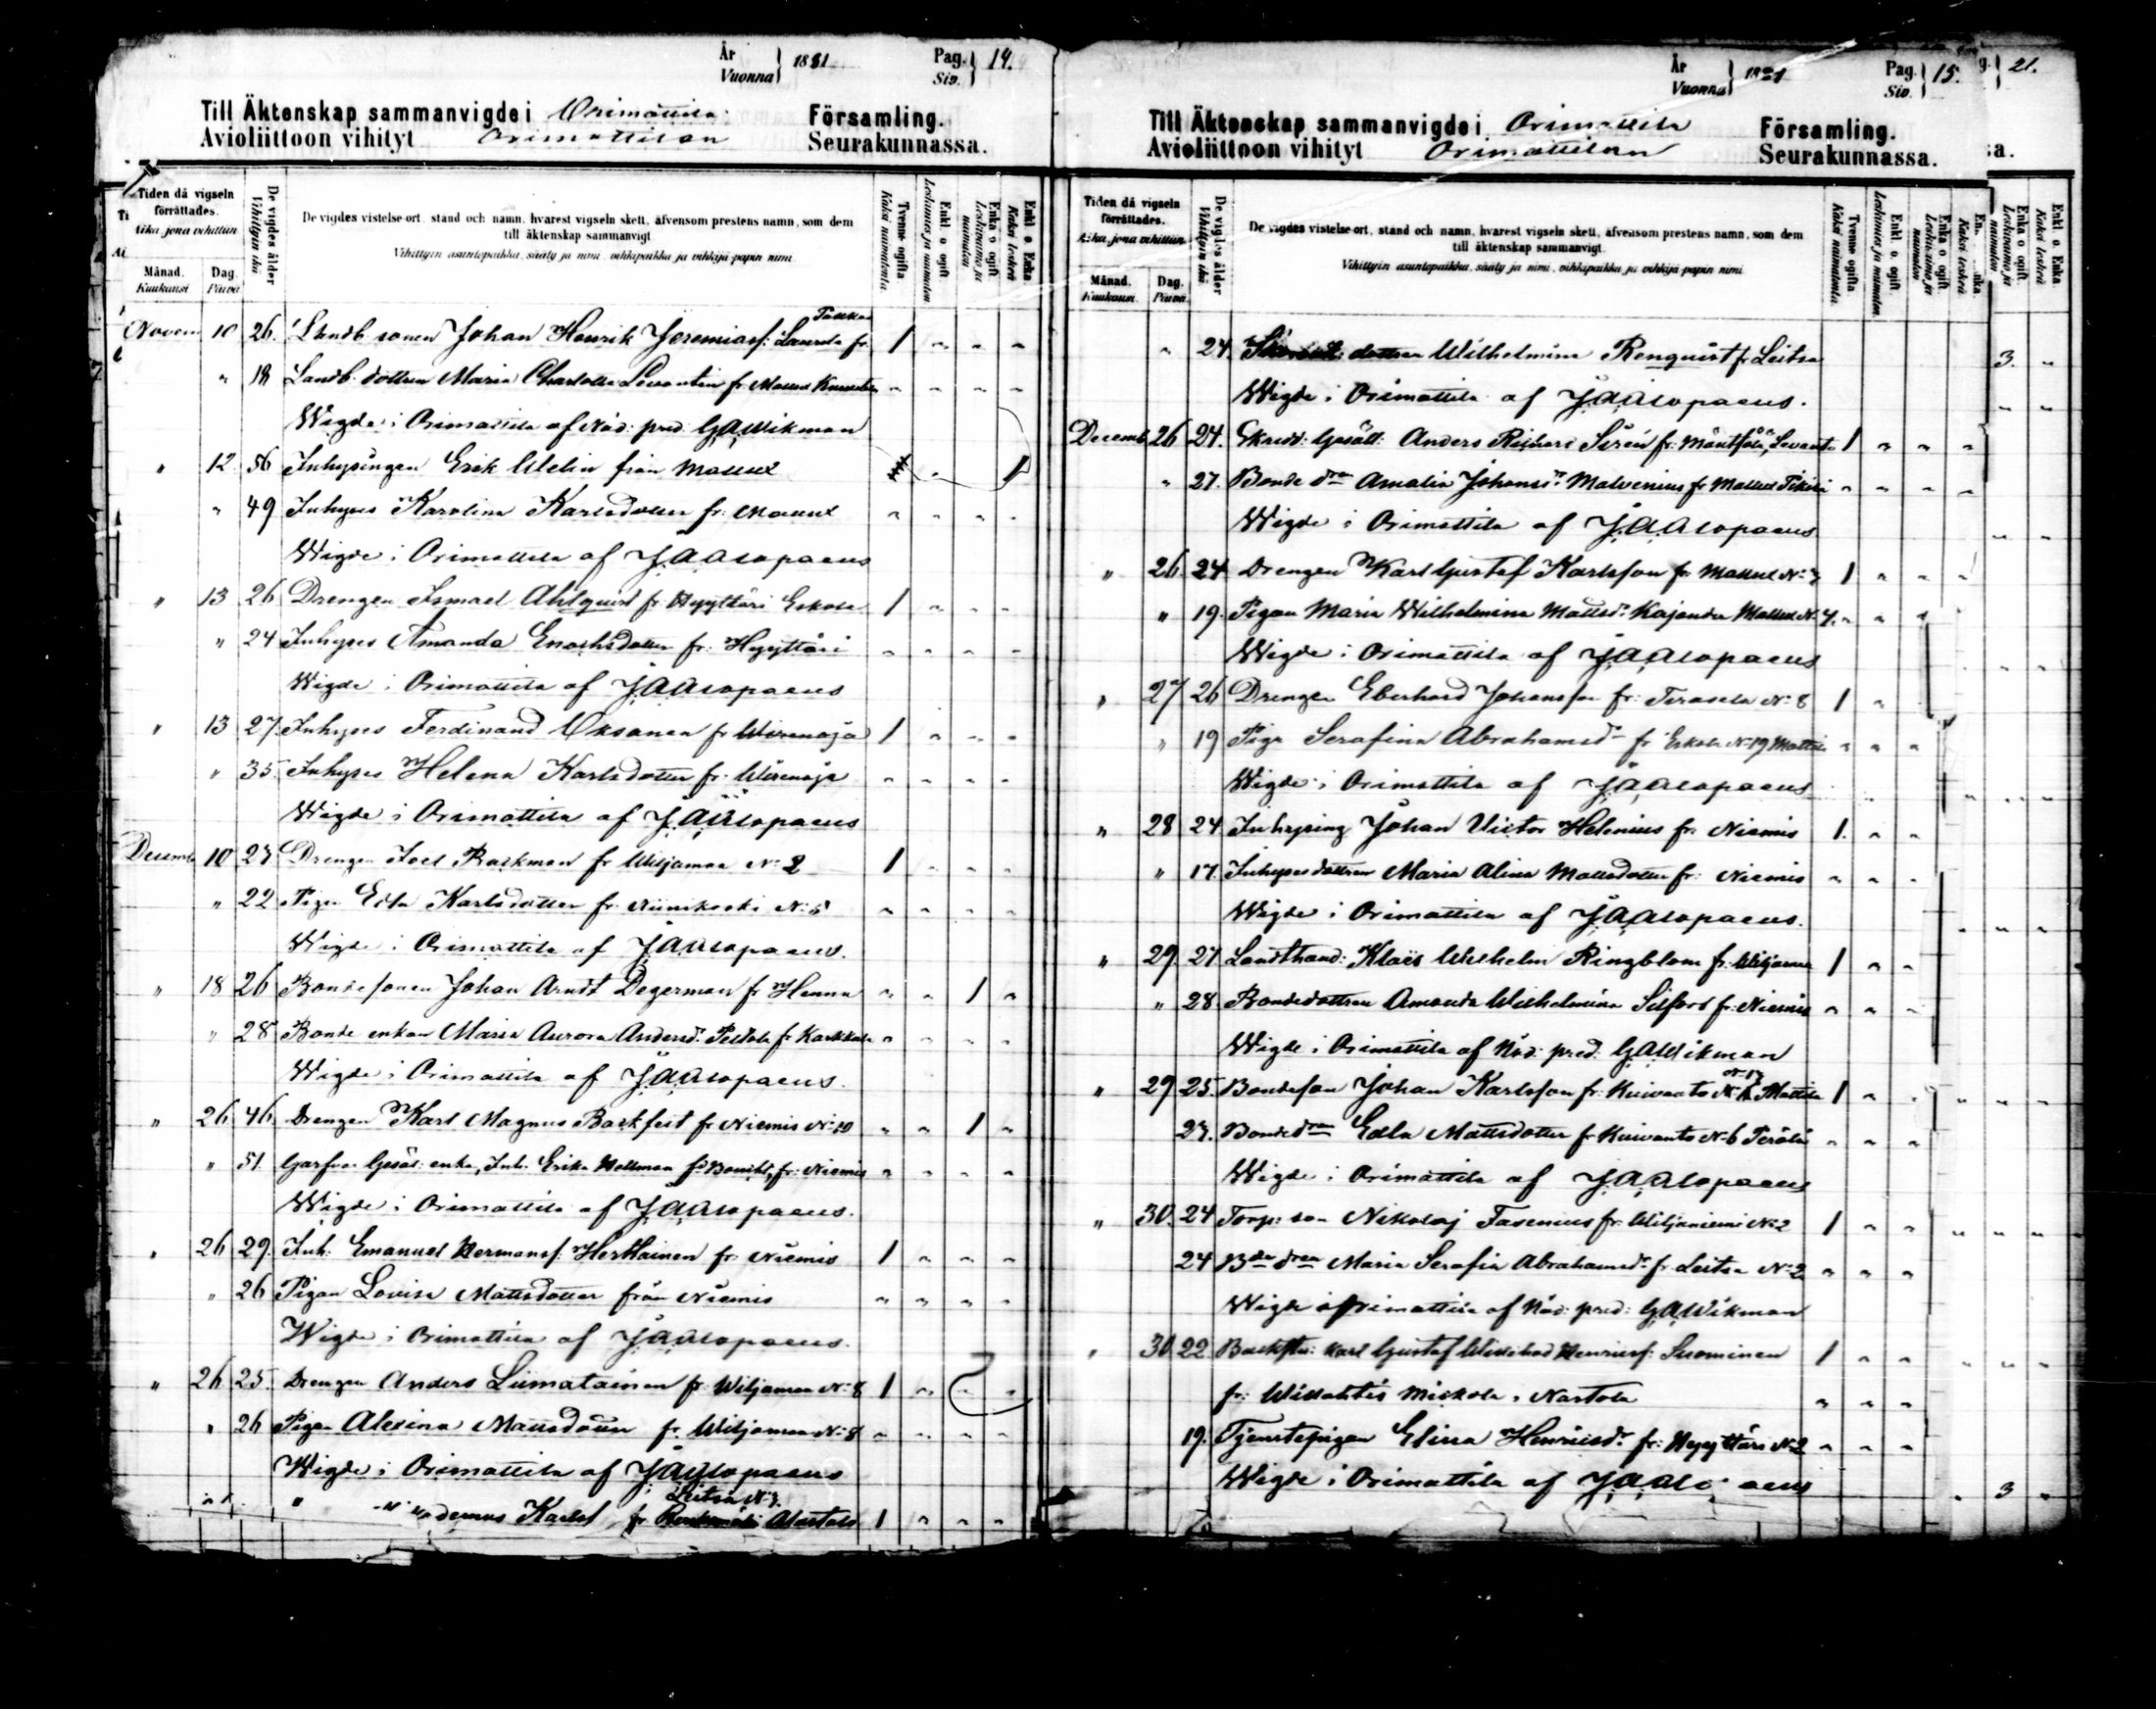 År Vuonna } 1881 Pag. Siv. } 14.
Till Äktenskap sammanvigde i Orimattila Församling.
Avioliittoon vihityt Orimattilan Seurakunnassa.
Tiden då vigseln förrättades.
Aika, jona vihittiin
Månad. Kuukausi
Dag. Päivä
De vigdes ålder
Vihittyin ikä
De vigdes vistelse-ort, stand och namn, hvarest vigseln skett, äfvensom prestens namn, som dem till äktenskap sammanvigt
Vihittyin asuntopaikka, sääty ja nimi, vihkipaikka ja vihkijä-papin nimi
Tvenne ogifta
Kaksi naimatonta
Enkl. o. ogift
Leskimies ja naimaton
Enka o ogift
Leskivaimo ja naimaton
Enkl. o. Enka
Kaksi leskeä
Novem 10 26. Landb. sonen Johan Henrik Jeremiasf: Laurela fr. 1 " " "
" 18 Landb. dottren Maria Charlotta Levantin fr. Mallusk " " " "
Wigde i Orimattila af Nåd: pred. G.A.Wikman
" 12. 56 Inhysingen Erik Welin från Mallusk " 1
" 49 Inhyses Karolina Karlsdotter fr: Mallusk " " " "
Wigde i Orimattila af J.A.Alopaeus
" 13 26 Drengen Ismael Ahlquist fr. Hyyttäri Eskola 1 " " "
" 24 Inhyses Amanda Enochsdotter fr: Hyyttäri " " " "
Wigde i Orimattila af J.A.Alopaeus
" 13 27. Inhyses Ferdinand Oksanen fr Wirenoja 1 " " "
" 35. Inhyses Helena Karlsdotter fr: Wirenoja " " " "
Wigde i Orimattila af J.A.Alopaeus
Decemb 10 23 Drengen Joel Backman fr Wiljamaa N:o 2 1 " " "
" 22 Pigan Edla Karlsdotter fr. Niinikoski N:o 5 " " " "
Wigde i Orimattila af J.A.Alopaeus.
" 18 26 Bondesonen Johan Arndt Degerman fr Henna " " 1 "
" 28 Bonde enkan Maria Aurora Andersd:r Peltola fr Karkkula " " " "
Wigde i Orimattila af J.A.Alopaeus.
" 26 46 Drengen Karl Magnus Backfeit fr Niemis N:o 10 " " 1 "
" 51 Garfvar Gesäl: enka, Inh. Erika Hellman fr: Niemis " " " "
Wigde i Orimattila af J.A.Alopaeus.
" 26 29. Inh: Emanuel Hermansf: Herttainen fr: Niemis 1 " " "
" 26 Pigan Lovisa Mattsdotter från Niemis " " " "
Wigde i Orimattila af J.A.Alopaeus.
" 26 25. Drengen Anders Liimatainen fr: Wiljamaa N:o 8 1 " " "
" 26 Pigan Alexina Mattsdotter fr. Wiljamaa N:o 8 " " " "
Wigde i Orimattila af J.A.Alopaeus
Leitsa N:o 3.
demus Karlsf fr 1 " " "
År Vuonna } 1881 Pag. Siv. } 15. g. } 21.
Till Äktenskap sammanvigde i Orimattila Församling.
Avioliittoon vihityt Orimattilan Seurakunnassa. :a.
Tiden då vigseln förrättades.
Aika, jona vihittiin
Månad. Kuukausi
Dag. Päivä
De vigdes ålder
Vihittyin ikä
De vigdes vistelse-ort, stand och namn, hvarest vigseln skett, äfvensom prestens namn, som dem till äktenskap sammanvigt.
Vihittyin asuntopaikka, sääty ja nimi, vihkipaikka ja vihkijä-papin nimi
Tvenne ogifta
Kaksi naimatonta
Enkl. o. ogift
Leskimies ja naimaton
Enka o ogift
Leskivaimo ja naimaton
Kaksi leskeä
Enka o ogift
Leskivaimo ja naimaton
Enkl. o. Enka
Kaksi leskeä
" 24 dottren Wilhelmina Renquist fr Leitsa 3. "
Wigde i Orimattila af J.A.Alopaeus.
Decemb 26 24. Skrädd: Gesäll: Anders Richard Sirén fr: Mäntsälä, Levanto 1 " " "
" 27. Bonde d:n Amalia Johansd:r Malvenius fr Mallusk " " " "
Wigde i Orimattila af J.A.Alopaeus
" 26 24 Drengen Karl Gustaf Karlsson fr Mallusk N:o 7 1 " " "
" 19. Pigan Maria Wilhelmina Mattsd:r Kajander Mallusk N:o 7. " " "
Wigde i Orimattila af J.A.Alopaeus
" 27 26 Drengen Eberhard Johansson fr: Terasela N:o 8 1 "
" 19 Piga Serafina Abrahamsd:r fr Eskola N:o 19 " " "
Wigde i Orimattila af J.A.Alopaeus
" 28 24 Inhysing Johan Victor Helenius fr: Niemis 1. " "
" 17 Inhysesdottren Maria Alina Mattsdotter fr: Niemis " " "
Wigde i Orimattila af J.A.Alopaeus.
" 29. 27 Landthand: Klaes Wilhelm Ringblom fr. Wiljamaa 1 " "
" 28. Bondedottren Amanda Wilhelmina Silfors fr: Niemis " " "
Wigde i Orimattila af Nåd: pred. G.A.Wikman
" 29 25. Bondeson Johan Karlsson fr: Kuivanto N:o 17 Mattila 1 "
23. Bonded:n Edla Mattsdotter fr Kuivanto N:o 6 Perälä " " "
Wigde i Orimattila af J.A.Alopaeus
" 30. 24 Torp: son Nikolaj Fasenius fr. Wiljaniemi N:o 2 1 " "
24 B:de d:n Maria Serafia Abrahamsd:r fr Leitsa N:o 2 " " "
Wigde i Orimattila af Nåd: pred: G.A.Wikman
" 30 22 Karl Gustaf Henriksf: Suominen 1 " "
fr: Willahtis Mickola, Nastola " " "
19. Tjenstepigan Elina Henriksd:r fr: Hyyttäri N:o 2 " " "
Wigde i Orimattila af J.A.Alopaeus " 3 "